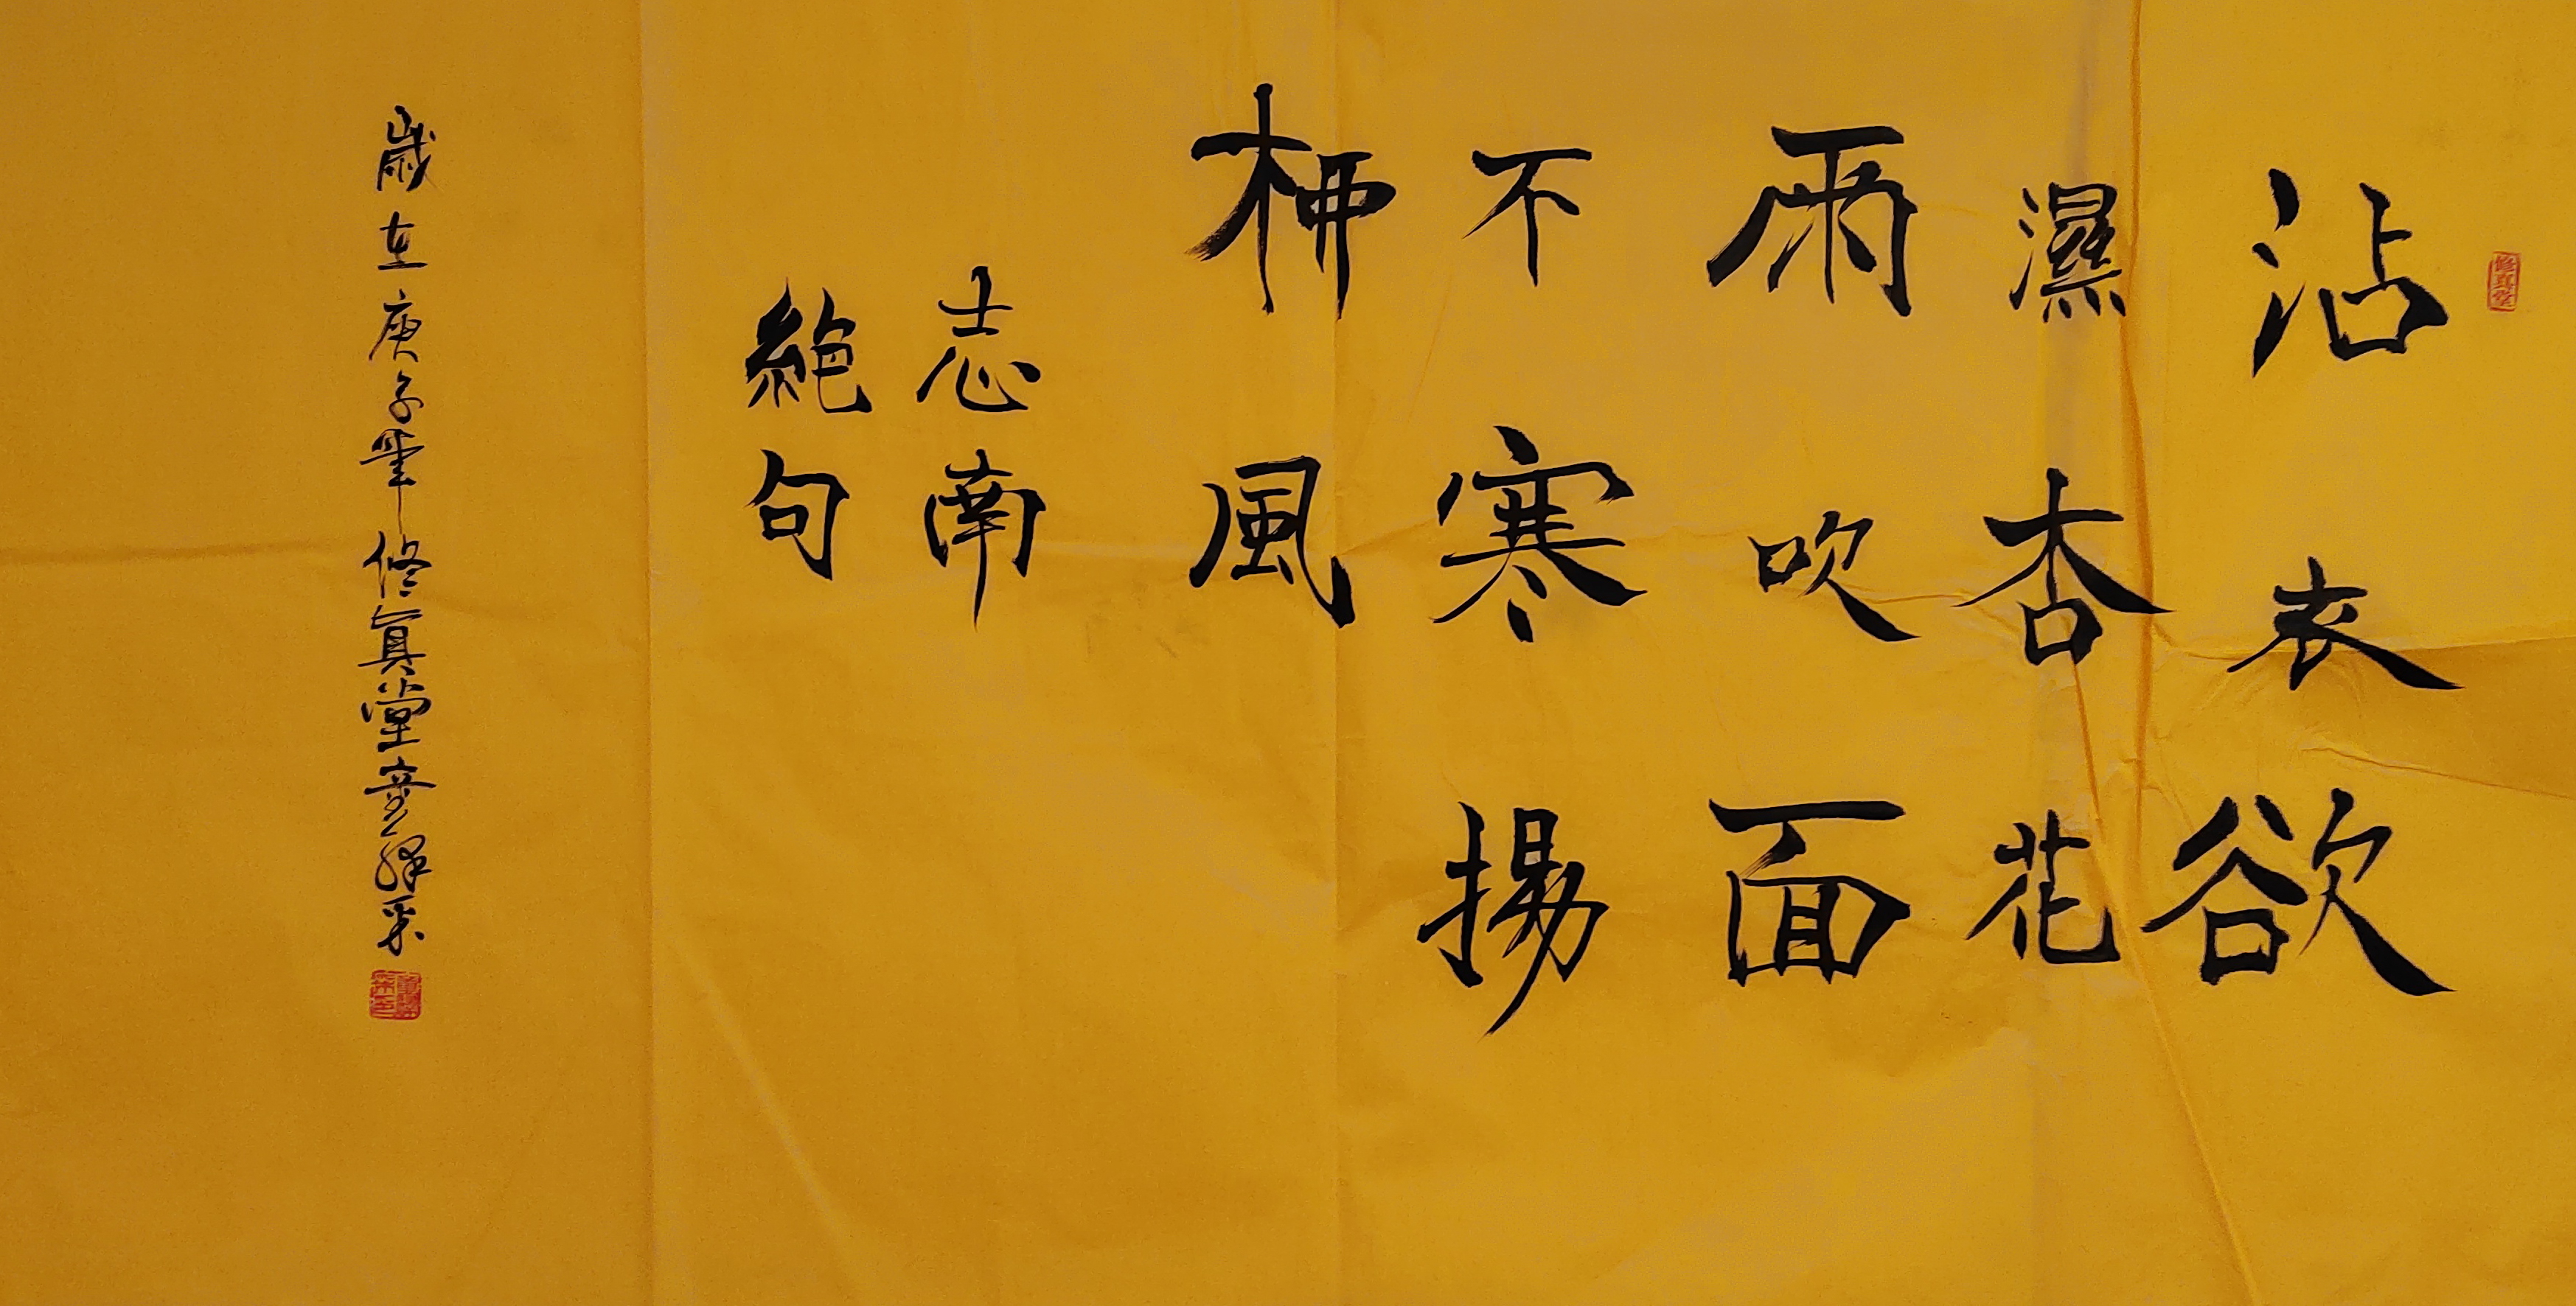 修真堂
沾衣欲
濕杏花
雨吹面
不寒揚
柳風
志南
絕句
歲在庚子年修真堂